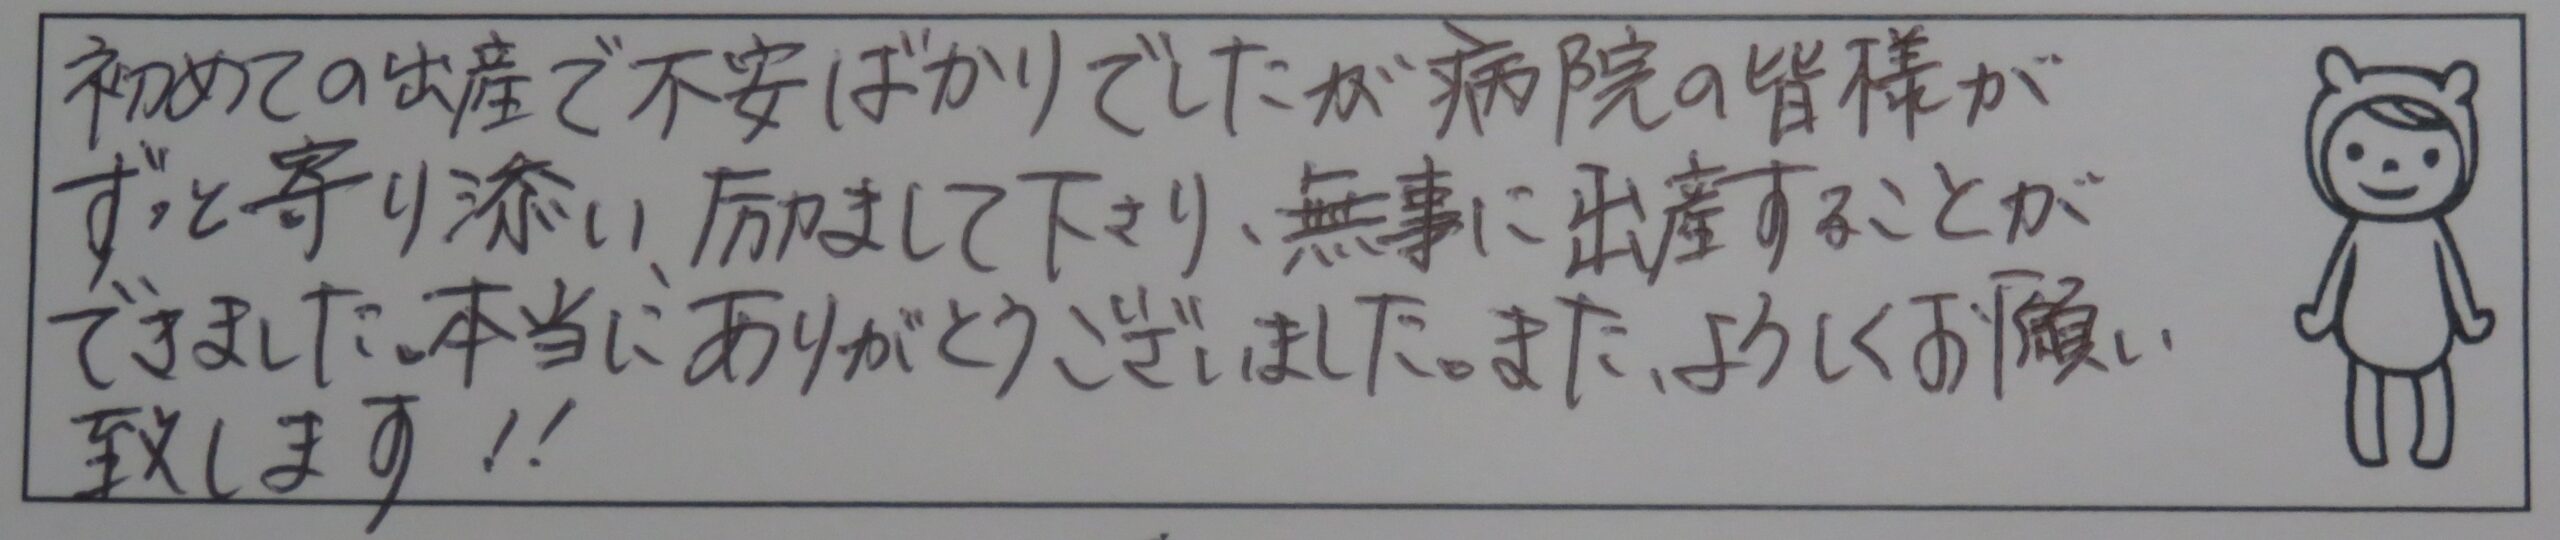 初めての出産で不安ばかりでしたが病院の皆様が
ずっと寄り添い、励まして下さり、無事に出産することが
できました。本当に、ありがとうございました。また、よろしくお願い
致します!!